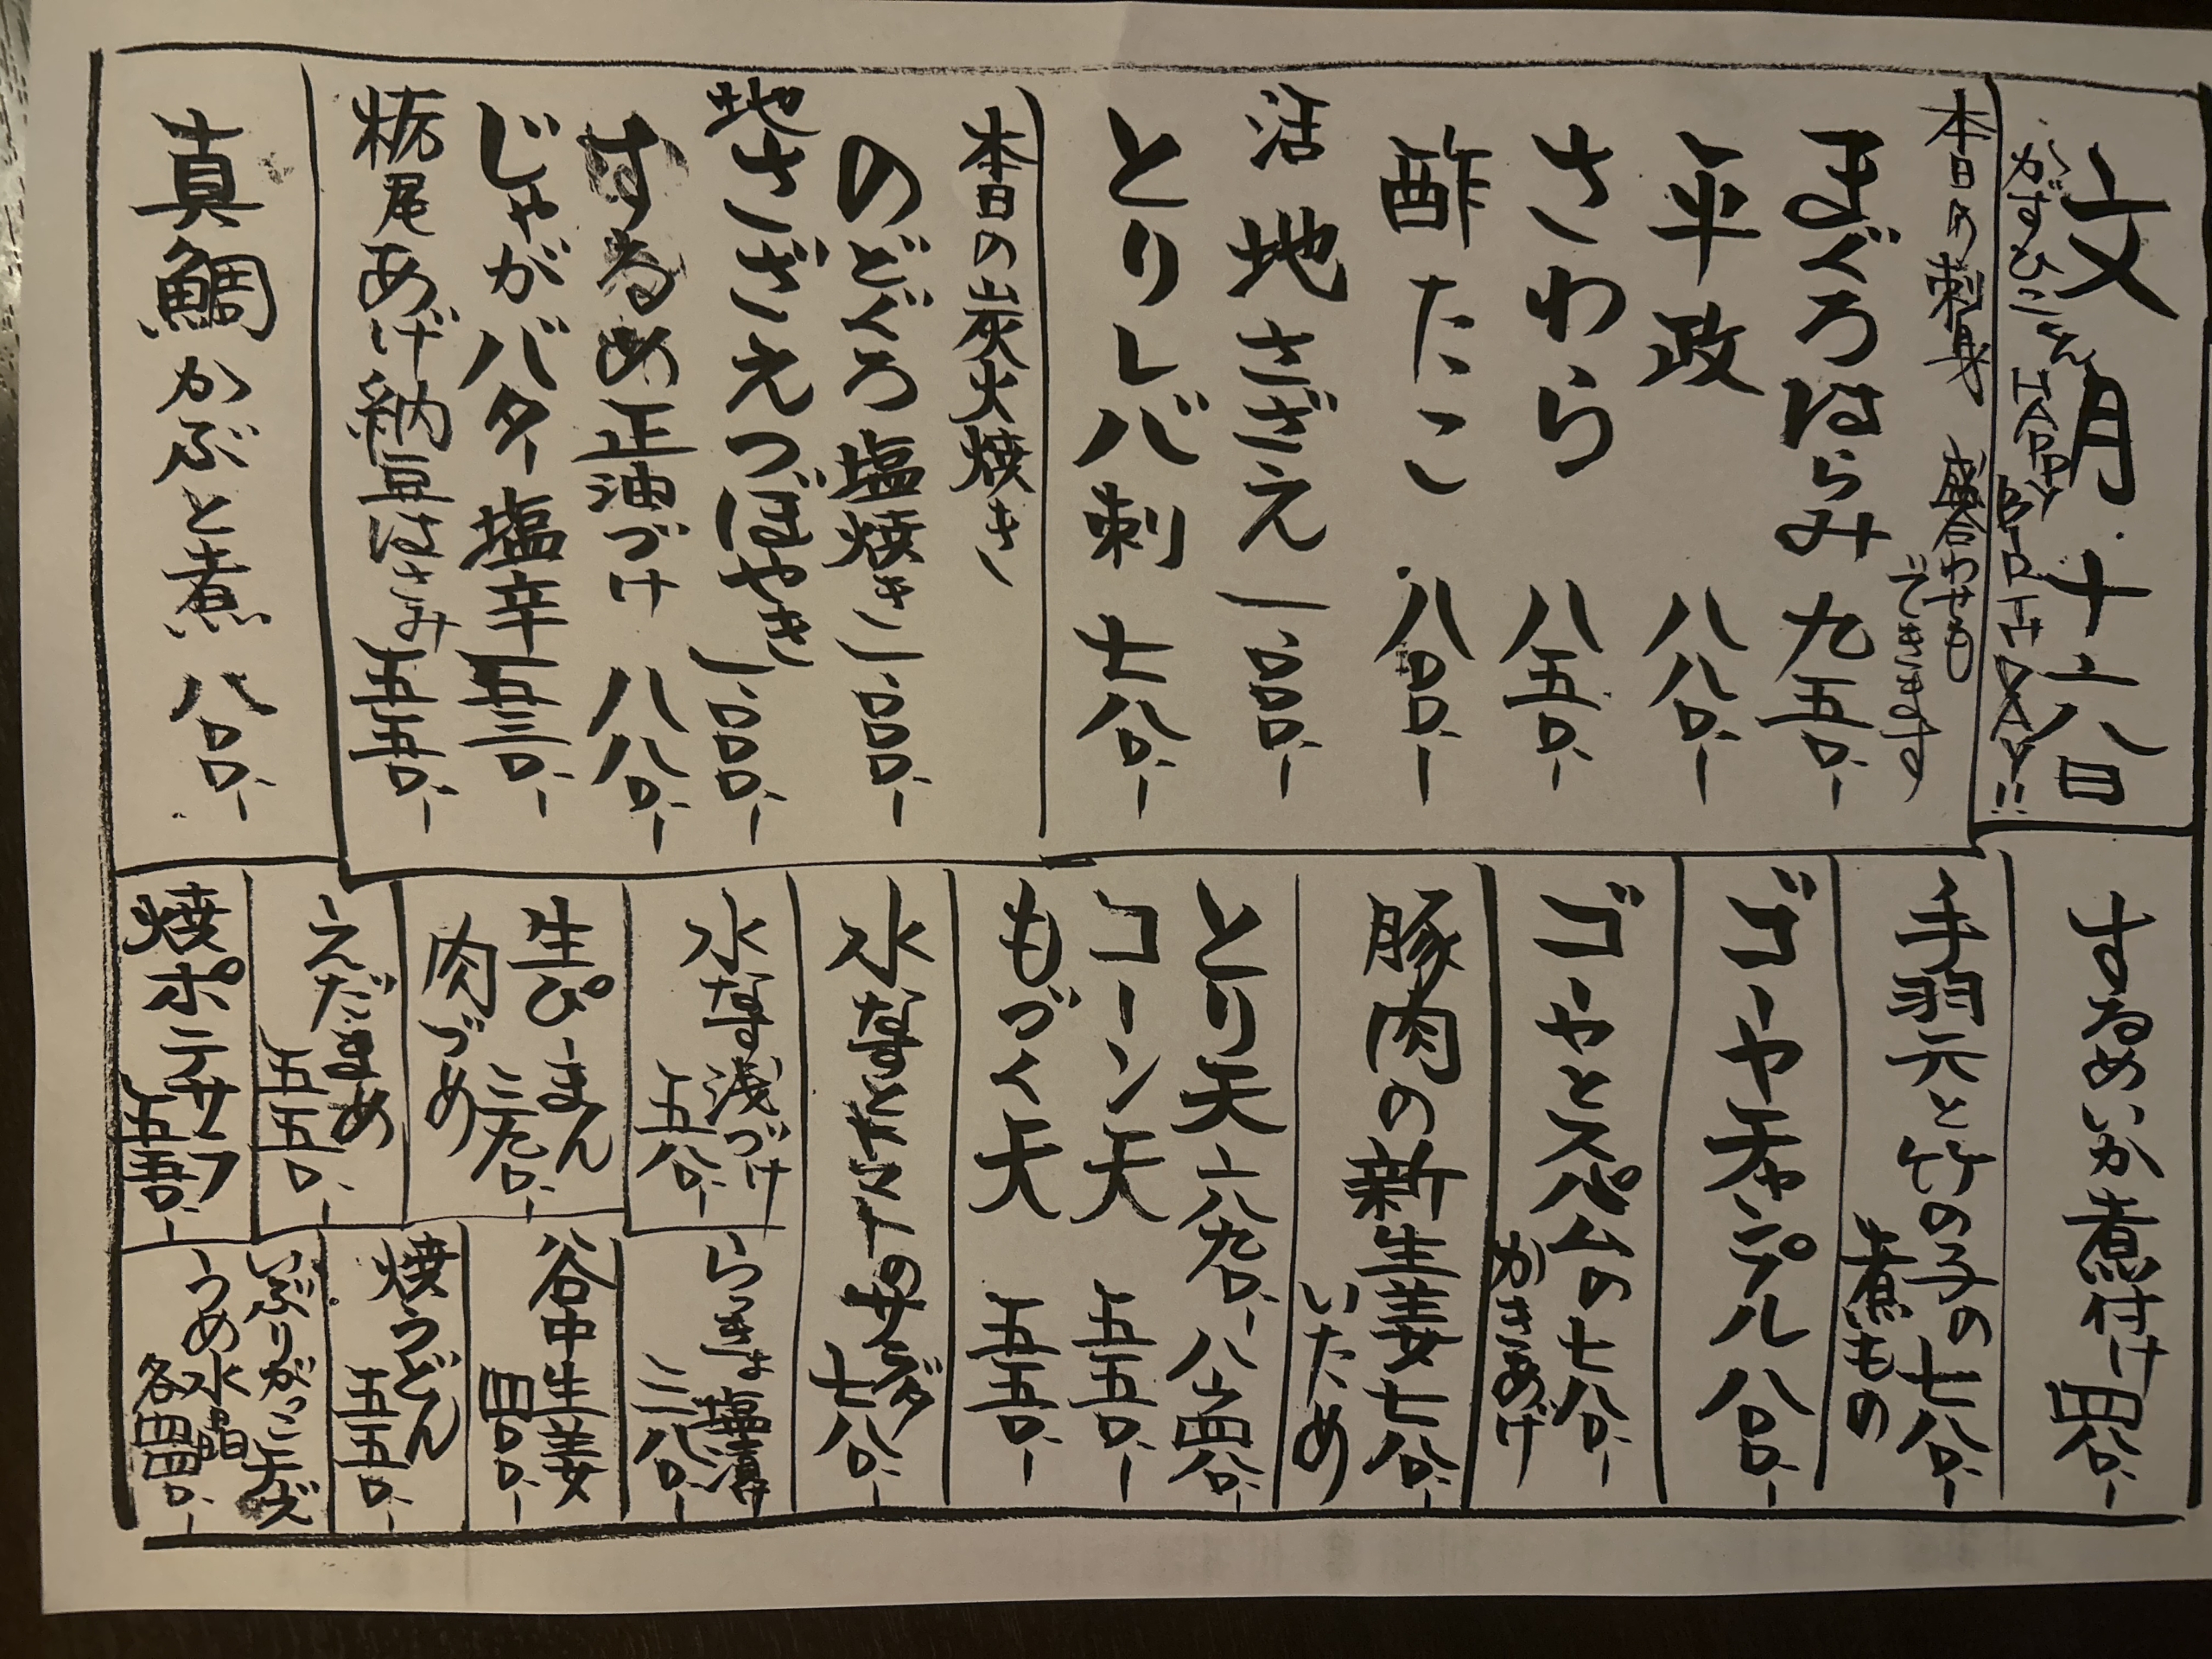 文月十六日
かずひこさん HAPPY BIRTHDAY!!
本日の刺身 盛合わせもできます
まぐろはらみ 九五〇、ー
平政 八八〇、ー
さわら 八五〇、ー
酢たこ 八〇〇、ー
活地さざえ 一、〇〇〇、ー
とりレバ刺 七八〇、ー
本日の炭火焼き
のどぐろ塩焼き 一、〇〇〇、ー
地さざえつぼやき 一、〇〇〇、ー
するめ正油づけ 八八〇、ー
じゃがバター塩辛 五三〇、ー
栃尾あげ納豆はさみ 五五〇、ー
真鯛かぶと煮 八〇〇、ー
するめいか煮付け 四八〇、ー
手羽元と竹の子の煮もの 七八〇、ー
ゴーヤチャンプル 八八〇、ー
ゴーヤとスパムのかきあげ 七八〇、ー
豚肉の新生姜いため 七八〇、ー
とり天
コーン天 五五〇、ー
もづく天 五五〇、ー
水なすとトマトのサラダ 七八〇、ー
水なす浅づけ 五八〇、ー
らっきょ塩漬け 三八〇、ー
生ぴーまん肉づめ 三九〇、ー
谷中生姜 四〇〇、ー
えだまめ 五五〇、ー
焼うどん 五五〇、ー
焼ポテサラ 五五〇、ー
いぶりがっこチーズ
うめ水晶
各四四〇、ー